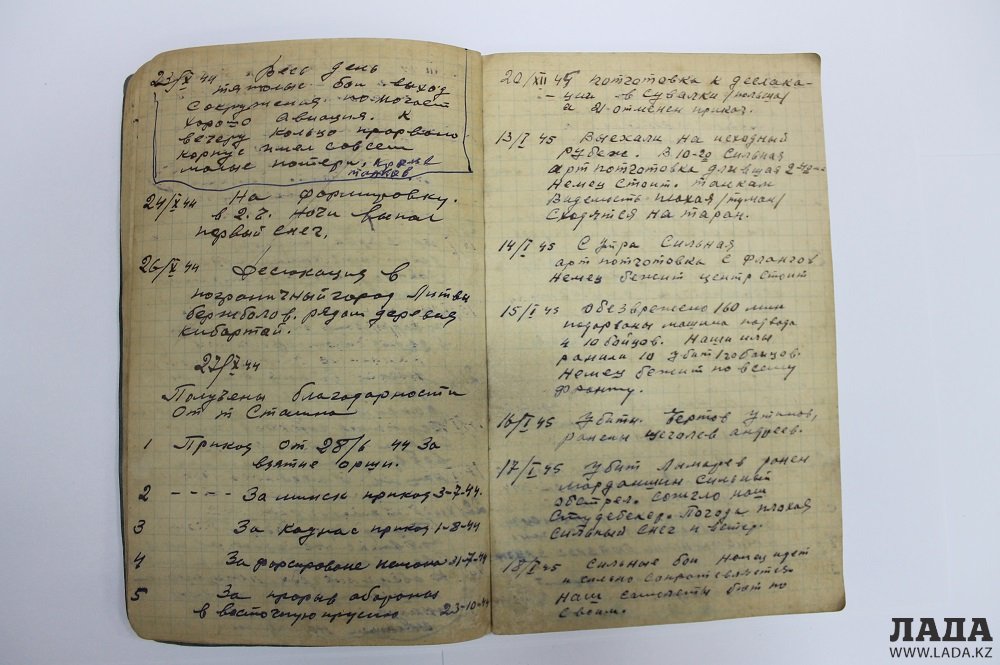 23/X 44 Весь день
тяжолые бои выход
с окружения помогает
хорошо Авиация. К
вечеру кольцо прорвано
корпус имел совсем
малые потери, кроме
танков
24/X 44 На формировку.
в 2.ч. ночи выпал
первый снег,
26/X 44 Деслокация в
пограничный город Литвы
Вержболов. рядом деревня
кибартай.
27/X 44
Получены благодарности
От т Сталина
1 Приказ От 28/6 44 За
взятие Орши.
2 ---- За минск приказ 3-7-44.
3 За Каунас приказ 1-8-44
4 За форсирование немана 31-7-44
5 За прорыв обороны
в восточную прусию 23-10-44
20/XII 44 потготовка к деслака-
ции в Сувалки /польша/
а 21-отменен приказ.
13/I 45 Выехали на исходный
рубеж. В 10-20 Сильная
арт потготовка длившая
Немец Стоит. танкам
Видемость плохая /туман/
Сходятся на таран.
14/I 45 С Утра Сильная
арт потготовка С Флангов
Немец бежит центр стоит
15/I 45 Обезврежено 160 мин
подорваны машина подвода
4 10 бойцов. Наши
ранили 10 убит
Немец бежит по всему
Фронту.
16/I 45 Убиты. Чертов Утинов,
ранены щеголев андреев.
17/I 45 Убит ранен
марданшин Сильный
обстрел. Сожгло наш
Студебекер. Погода плохая
Сильный Снег и ветер.
18/I 45 Сильные бои немец идет
и сильно сопротевляется.
Наш самолеты бьют по
своим.
ЛАДА
WWW.LADA.KZ